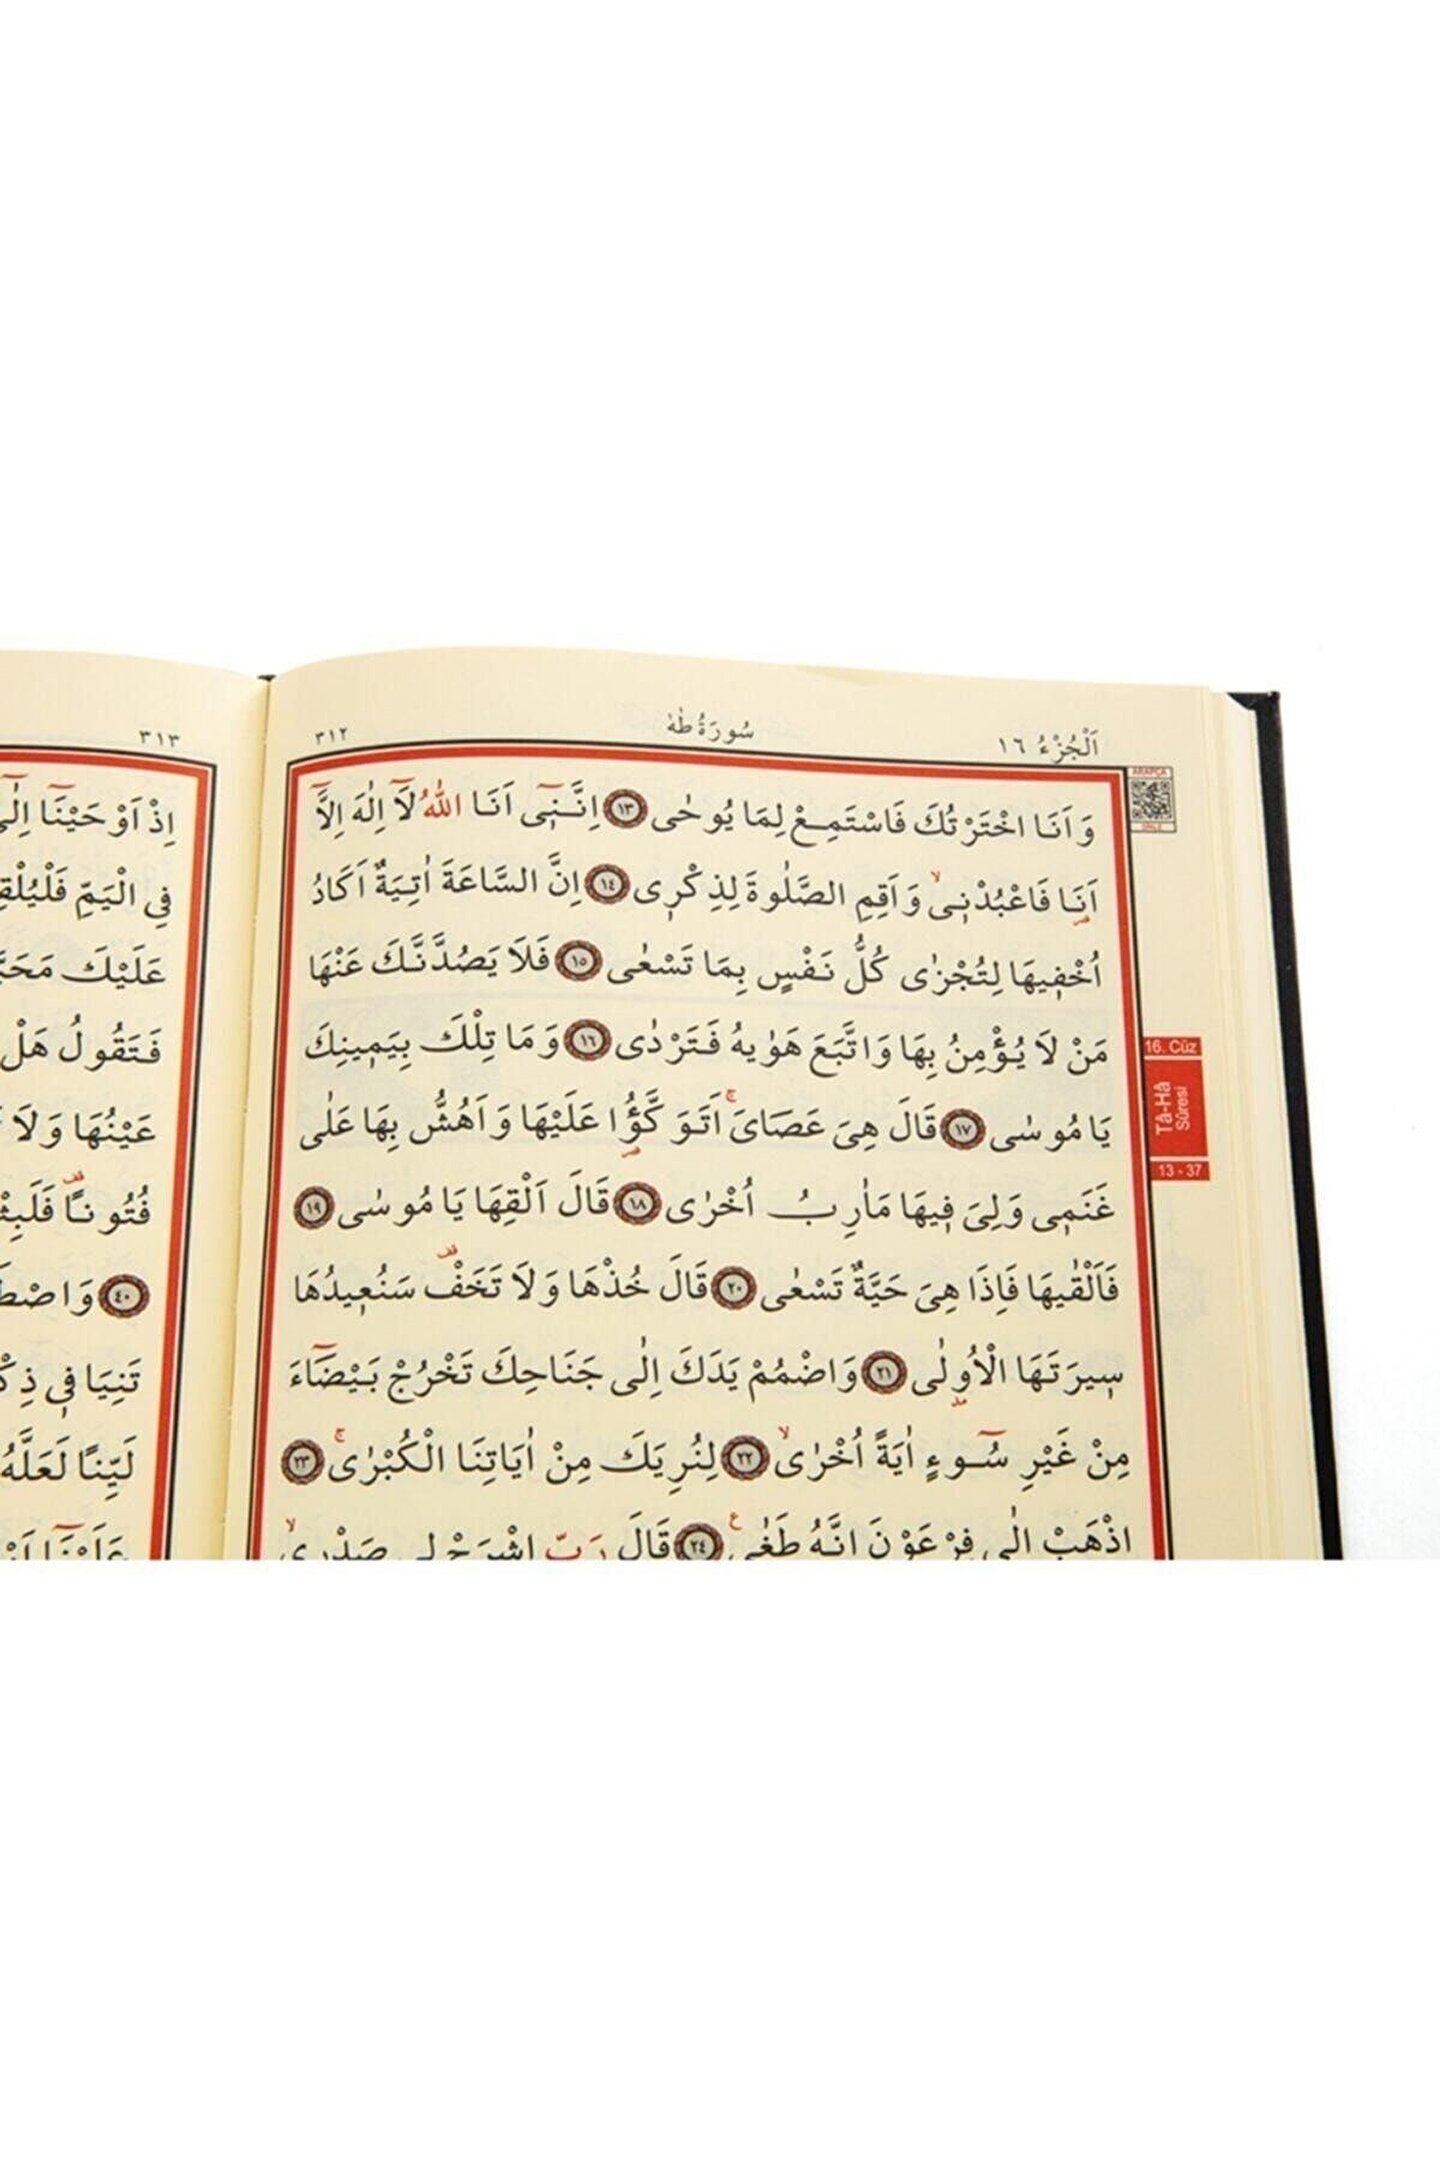 اَلْجُزْءُ ١٦
سُورَةُ طٰهٰ
٣١٢
وَاَنَا اخْتَرْتُكَ فَاسْتَمِعْ لِمَا يُوحٰى ﴿١٣﴾ اِنَّنٖٓى اَنَا اللّٰهُ لَٓا اِلٰهَ اِلَّٓا
اَنَا فَاعْبُدْنٖىۙ وَاَقِمِ الصَّلٰوةَ لِذِكْرٖى ﴿١٤﴾ اِنَّ السَّاعَةَ اٰتِيَةٌ اَكَادُ
اُخْفٖيهَا لِتُجْزٰى كُلُّ نَفْسٍ بِمَا تَسْعٰى ﴿١٥﴾ فَلَا يَصُدَّنَّكَ عَنْهَا
مَنْ لَا يُؤْمِنُ بِهَا وَاتَّبَعَ هَوٰيهُ فَتَرْدٰى ﴿١٦﴾ وَمَا تِلْكَ بِيَمٖينِكَ
يَا مُوسٰى ﴿١٧﴾ قَالَ هِىَ عَصَاىَۚ اَتَوَكَّؤُا عَلَيْهَا وَاَهُشُّ بِهَا عَلٰى
غَنَمٖى وَلِىَ فٖيهَا مَاٰرِبُ اُخْرٰى ﴿١٨﴾ قَالَ اَلْقِهَا يَا مُوسٰى ﴿١٩﴾
فَاَلْقٰيهَا فَاِذَا هِىَ حَيَّةٌ تَسْعٰى ﴿٢٠﴾ قَالَ خُذْهَا وَلَا تَخَفْ سَنُعٖيدُهَا
سٖيرَتَهَا الْاُولٰى ﴿٢١﴾ وَاضْمُمْ يَدَكَ اِلٰى جَنَاحِكَ تَخْرُجْ بَيْضَٓاءَ
مِنْ غَيْرِ سُٓوءٍ اٰيَةً اُخْرٰىۙ ﴿٢٢﴾ لِنُرِيَكَ مِنْ اٰيَاتِنَا الْكُبْرٰىۚ ﴿٢٣﴾
اِذْهَبْ اِلٰى فِرْعَوْنَ اِنَّهُ طَغٰى ﴿٢٤﴾ قَالَ رَبِّ اشْرَحْ لٖى صَدْرٖىۙ
ARAPÇA
16. Cüz
Tâ-Hâ
Sûresi
13 - 37
٣١٣
اِذْ اَوْحَيْنَٓا اِلٰٓى
فِى الْيَمِّ
عَلَيْكَ
فَتَقُولُ هَلْ
عَيْنُهَا وَلَا
فُتُونًا
﴿٤٠﴾
تَنِيَا فٖى
لَيِّنًا لَعَلَّهُ
عَلَيْنَٓا